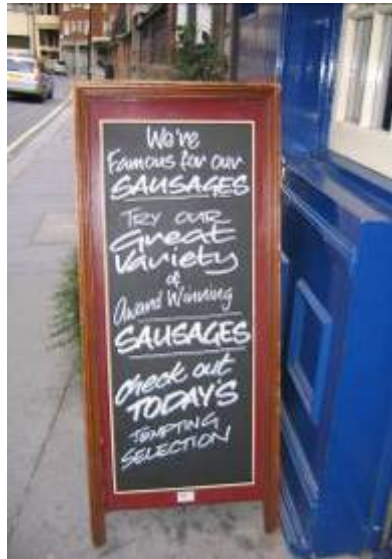 We're
Famous for our
SAUSAGES
TRY OUR
Great
Variety
of
Award Winning
SAUSAGES
Check out
TODAY'S
TEMPTING
SELECTION